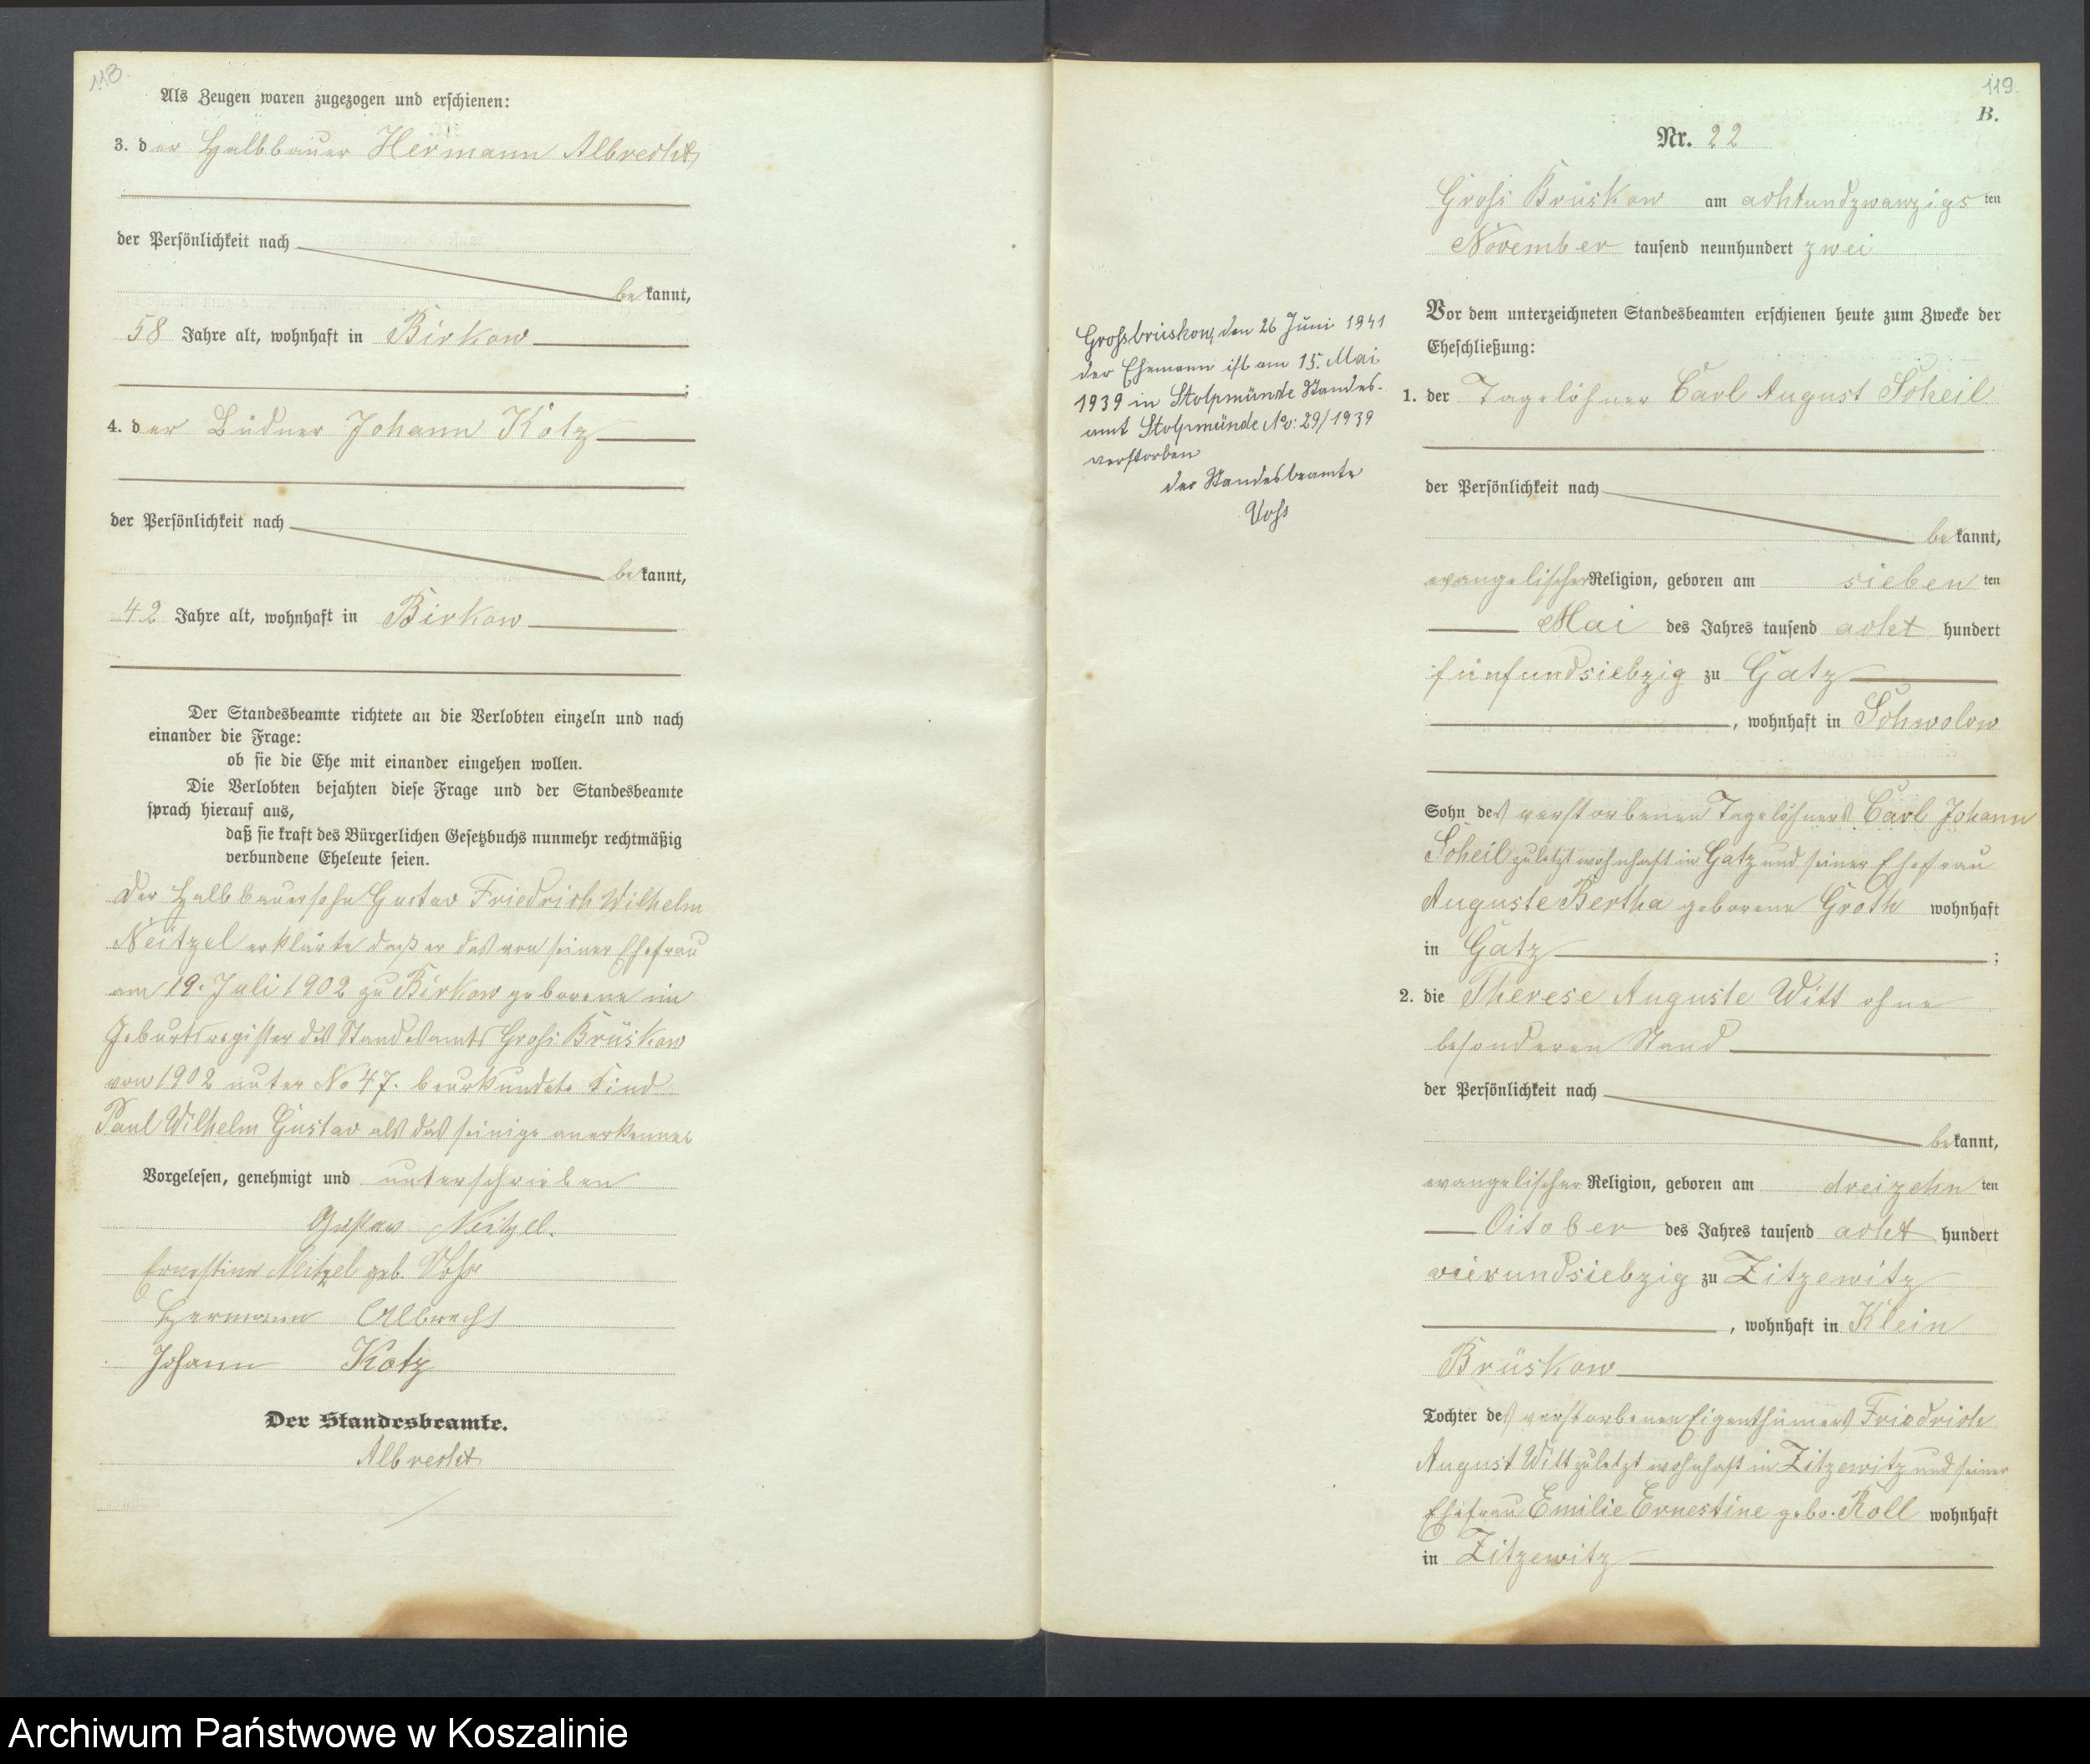 118.
Als Zeugen waren zugezogen und erschienen:
3. der Halbbauer Hermann Albrecht
der Persönlichkeit nach
bekannt,
58 Jahre alt, wohnhaft in Birkow
;
4. der Büdner Johann Kotz
der Persönlichkeit nach
bekannt,
42 Jahre alt, wohnhaft in Birkow
Der Standesbeamte richtete an die Verlobten einzeln und nach
einander die Frage:
ob sie die Ehe mit einander eingehen wollen.
Die Verlobten bejahten diese Frage und der Standesbeamte
sprach hierauf aus,
daß sie kraft des Bürgerlichen Gesetzbuchs nunmehr rechtmäßig
verbundene Eheleute seien.
Der Halbbauersohn Gustav Friedrich Wilhelm
Neitzel erklärte daß er das von seiner Ehefrau
am 19. Juli 1902 zu Birkow geborene im
Geburtsregister des Standesamts Groß Brüskow
von 1902 unter No 47. beurkundete Kind
Paul Wilhelm Gustav als das seinige anerkenne
Vorgelesen, genehmigt und unterschrieben
Gustav Neitzel.
Ernestine Neitzel geb. Voß
Hermann Albrecht
Johann Kotz
Der Standesbeamte.
Albrecht
119.
B.
Nr. 22
Groß Brüskow am achtundzwanzigsten
November tausend neunhundert zwei
Vor dem unterzeichneten Standesbeamten erschienen heute zum Zwecke der
Eheschließung:
1. der Tagelöhner Carl August Scheil
der Persönlichkeit nach
bekannt,
evangelischer Religion, geboren am sieben ten
Mai des Jahres tausend acht hundert
fünfundsiebzig zu Gatz
, wohnhaft in Schwolow
Sohn des verstorbenen Tagelöhners Carl Johann
Scheil zuletzt wohnhaft in Gatz und seiner Ehefrau
Auguste Bertha geborene Groth wohnhaft
in Gatz ;
2. die Therese Auguste Witt ohne
besonderen Stand
der Persönlichkeit nach
bekannt,
evangelischer Religion, geboren am dreizehn ten
Oitober des Jahres tausend acht hundert
vierundsiebzig zu Zitzewitz
, wohnhaft in Klein
Brüskow
Tochter des verstorbenen Eigenthümers Friedrich
August Witt zuletzt wohnhaft in Zitzewitz und seiner
Ehefrau Emilie Ernestine gebo. Roll wohnhaft
in Zitzewitz
Großbrüskow, den 26 Juni 1941
der Ehemann ist am 15. Mai
1939 in Stolpmünde Standes-
amt Stolpmünde No: 29/1939
verstorben
der Standesbeamte
Voß
Archiwum Państwowe w Koszalinie